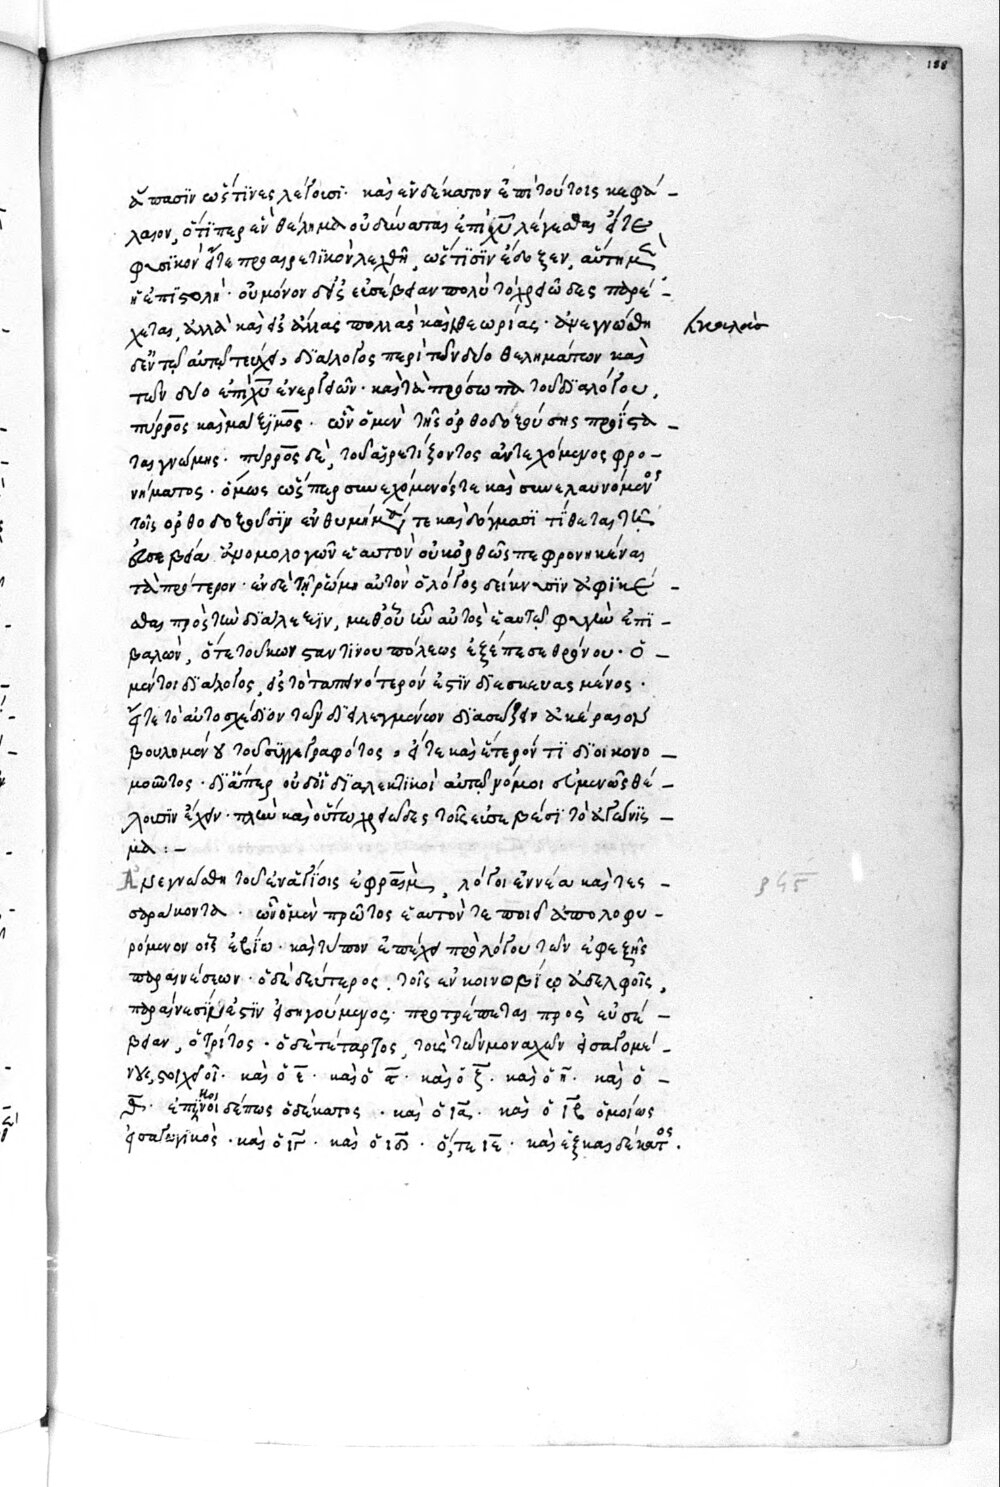 188
ἅπασιν ὥς τινες λέγουσι· καὶ ἑνδέκατον ἐπὶ τούτοις κεφά-
λαιον, ὅτιπερ ἓν θέλημα οὐ δύναται ἐπὶ χυ λέγεσθαι εἴτε
φυσικὸν εἴτε προαιρετικὸν λεχθῇ, ὥς τισιν ἔδοξεν, αὕτη μὲν
ἡ ἐπιστολὴ· οὐ μόνον δὲ εἰς εὐσέβειαν πολὺ τὸ χρειῶδες παρέ-
χεται, ἀλλὰ καὶ εἰς ἄλλας πολλὰς καὶ θεωρίας· ἀνεγνώσθη
δὲ ἐν τῷ αὐτῷ τεύχει, διάλογος περὶ τῶν δύο θελημάτων καὶ
τῶν δύο ἐπὶ χυ ἐνεργειῶν· καὶ τὰ πρόσωπα τοῦ διαλόγου,
πύρρος καὶ μάξιμος· ὧν ὁ μὲν τῆς ὀρθοδοξούσης προΐστα-
ται γνώμης· πύρρος δὲ, τοῦ αἱρετίζοντος ἀντεχόμενος φρο-
νήματος· ὅμως ὥσπερ συνεχόμενός τε καὶ συνελαυνόμενος
τοῖς ὀρθοδοξοῦσιν ἐνθυμήμασί τε καὶ δόγμασι τίθεται τῇ
εὐσεβεία ἀνομολογῶν ἑαυτὸν οὐκ ὀρθῶς πεφρονηκέναι
τὰ πρότερον· ἐν δὲ τῇ ῥώμῃ αὐτὸν ὁ λόγος δείκνυσιν ἀφικέ-
σθαι πρὸς τὴν διάλεξιν, μεθ' οὗ ἣν αὐτὸς ἑαυτῷ φυγὴν ἐπι-
βαλὼν, ὅτε τοῦ κωνσταντίνου πόλεως ἐξέπεσε θρόνου· ὁ-
μέντοι διάλογος, εἰς τὸ ταπεινότερόν ἐστιν διασκευασμένος·
εἴτε τὸ αὐτοσχέδιον τῶν διειλεγμένων διασώζειν ἀκέραιον
βουλομένου τοῦ συγγεγραφότος, εἴτε καὶ ἕτερόν τι διοικονο-
μοῦντος· διάπερ οὐδ' οἱ διαλεκτικοὶ αὐτῷ νόμοι σεμνῶς θέ-
λουσιν ἔχειν· πλὴν καὶ οὕτω χρειῶδες τοῖς εὐσεβέσι τὸ ἀγώνισ-
μα :-
Ἀνεγνώσθη τοῦ ἐν ἁγίοις ἐφραὶμ, λόγοι ἐννέα καὶ τεσ-
σαράκοντα· ὧν ὁ μὲν πρῶτος ἑαυτὸν τε ποιεῖ ἀπολοφυ-
ρόμενον οἷς ἐβίω· καὶ τύπον ἐπέχει προλόγου τῶν ἐφεξῆς
παραινέσεων· ὁ δὲ δεύτερος, τοῖς ἐν κοινοβίῳ ἀδελφοῖς,
παραίνεσίς ἐστιν εἰσηγούμενος· προτρέπεται πρὸς εὐσέ-
βειαν, ὁ τρίτος· ὁ δὲ τέταρτος, τοῖς τῶν μοναχῶν εἰσαγομέ-
νοις, στοιχειοῖ· καὶ ὁ ε· καὶ ὁ ϛ· καὶ ὁ ζ· καὶ ὁ η· καὶ ὁ-
θ· ἐπινοεῖ δέ πως ὁ δέκατος· καὶ ὁ ια· καὶ ὁ ιβ ὁμοίως
εἰσαγωγικὸς· καὶ ὁ ιγ· καὶ ὁ ιδ· ὅ, τε ιε· καὶ ἑξκαιδέκατος.